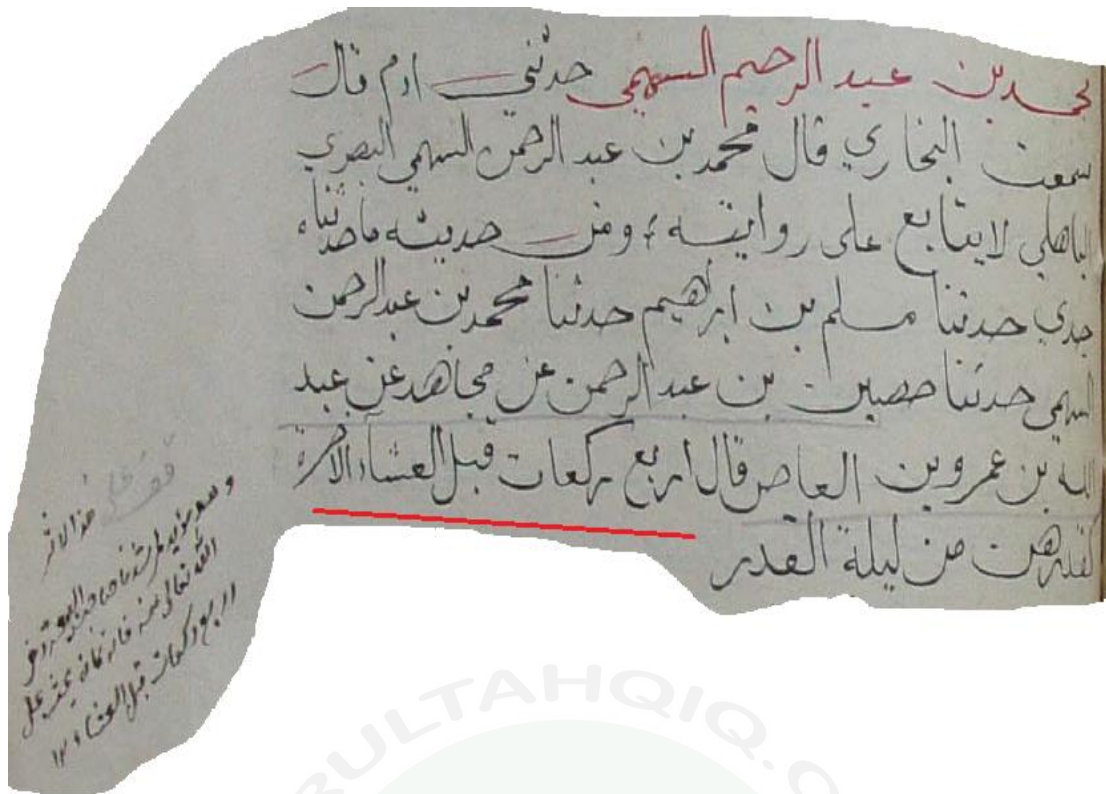 محمد بن عبد الرحيم السهمي حدثني ادم قال
سمعت البخاري قال محمد بن عبد الرحمن السهمي البصري
الباهلي لا يتابع على روايته ؛ ومن حديثه ما حدثناه
جدي حدثنا مسلم بن ابراهيم حدثنا محمد بن عبد الرحمن
السهمي حدثنا حصين بن عبد الرحمن عن مجاهد عن عبد
الله بن عمرو بن العاص قال اربع ركعات قبل العشاء الاخرة
كقدرهن من ليلة القدر
قف على هذا الاثر
الله تعالى عنه فانه كان يحث على
اربع ركعات قبل العشاء ١٢
BULTAHQIQ.C